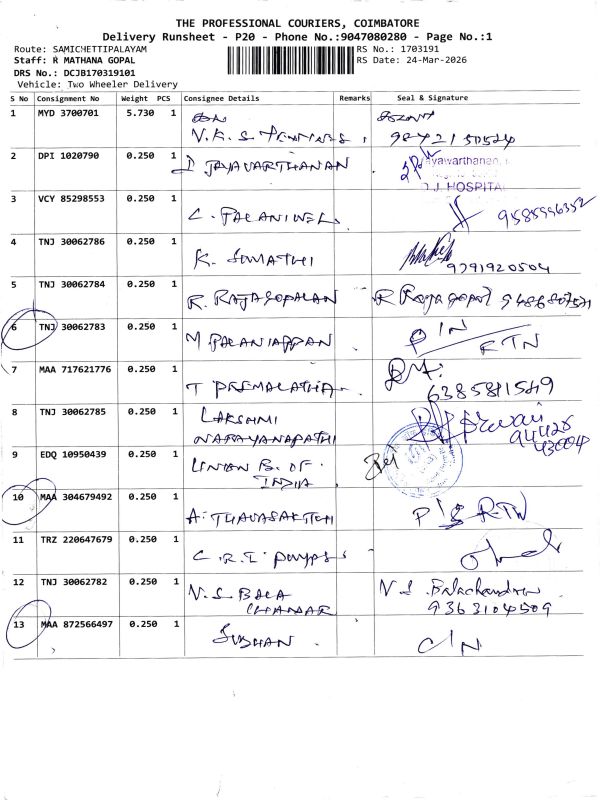 THE PROFESSIONAL COURIERS, COIMBATORE
Delivery Runsheet - P20 - Phone No.:9047080280 - Page No.:1
Route: SAMICHETTIPALAYAM
RS No.: 1703191
Staff: R MATHANA GOPAL
RS Date: 24-Mar-2026
DRS No.: DCJB170319101
Vehicle: Two Wheeler Delivery
S No Consignment No Weight PCS Consignee Details Remarks Seal & Signature
1 MYD 3700701 5.730 1
N.K.S
2 DPI 1020790 0.250 1 JAYAVARTHANAN
ayawarthanan,
D.J. HOSPITA
3 VCY 85298553 0.250 1
C. PALANIVEL
4 TNJ 30062786 0.250 1
K. SUMATHI 9791920504
5 TNJ 30062784 0.250 1
R. RAJAGOPALAN R Rajagopal
6 TNJ 30062783 0.250 1
M PALANIAPPAN
RTN
7 MAA 717621776 0.250 1
T PREMALATHA 6385811549
8 TNJ 30062785 0.250 1 LAKSHMI
NARAYANAPATHI
94428
43004
9 EDQ 10950439 0.250 1 UNION B. OF.
INDIA
10 MAA 304679492 0.250 1
RTN
11 TRZ 220647679 0.250 1
C.R.I PUMPS
12 TNJ 30062782 0.250 1 N.S BALA N.S. Balachandran
CHANDAR 9363104509
13 MAA 872566497 0.250 1 C/N